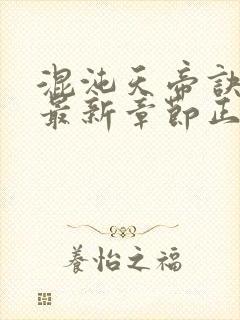 混沌天帝訣
最新章節正
養怡之福